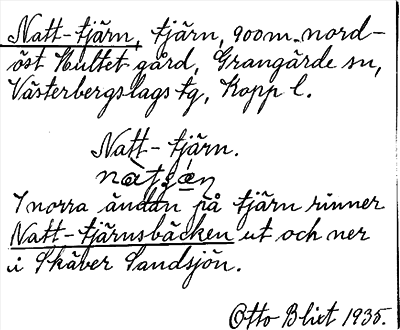 Natt-tjärn, tjärn, 900m. nord-
öst Hultet gård, Grangärde sn,
Västerbergslags tg, Kopp l.
Natt-tjärn.
I norra ändan på tjärn rinner
Natt-tjärnsbäcken ut och ner
i Skäber Sandsjön.
Otto Blixt 1935.